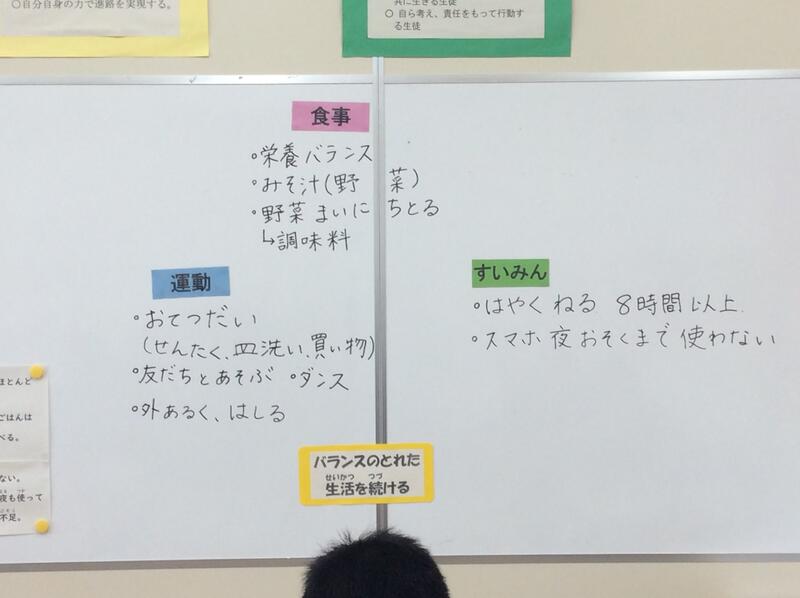 ○自分自身の力で進路を実現する。
共に生きる生徒
○ 自ら考え、責任をもって行動す
る生徒
食事
○栄養バランス
○みそ汁(野菜)
○野菜まいにちとる
↳調味料
運動
○おてつだい
(せんたく、皿洗い、買い物)
○友だちとあそぶ ○ダンス
○外あるく、はしる
すいみん
○はやくねる 8時間以上.
○スマホ夜おそくまで使わない
ほとんど
ごはんは
べる。
ない。
夜も使って
不足。
バランスのとれた
せいかつ つづ
生活を続ける